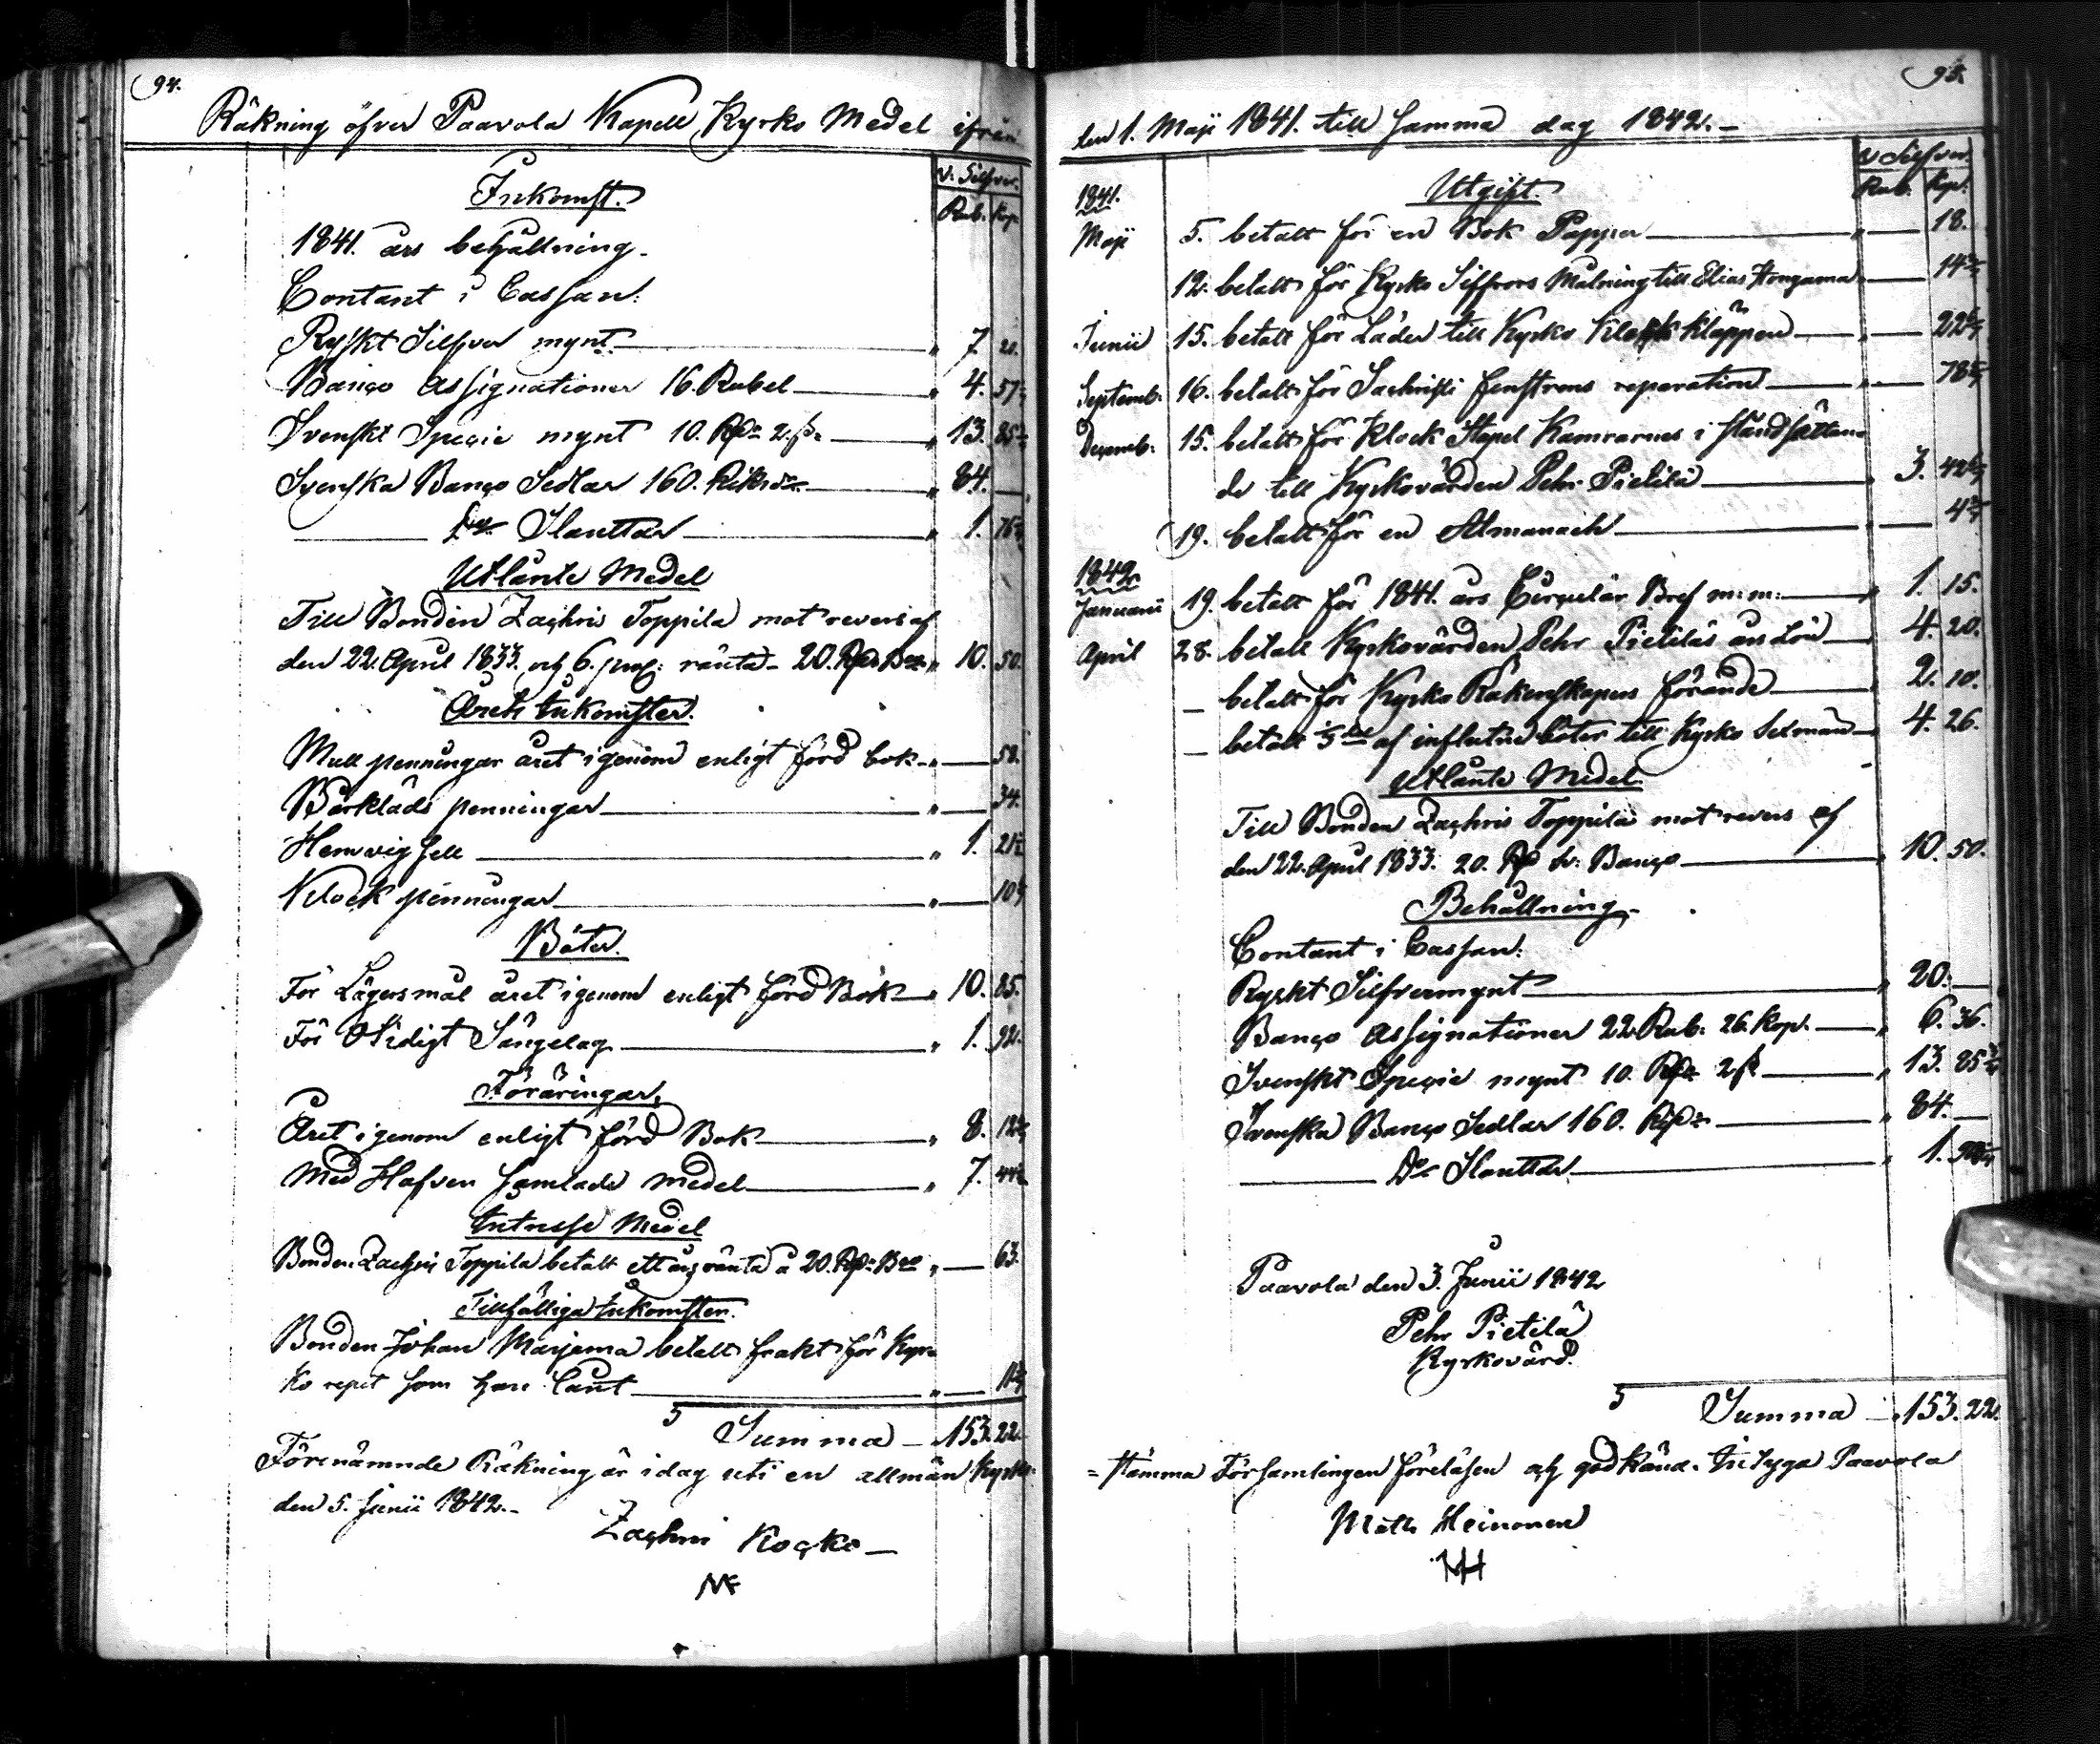 94.
Räkning öfver Paavola Kapell Kyrko Medel ifrån
v: Silfver.
Rub. Kop.
Inkomst.
1841. års behållning.
Contant i Cassan:
Ryskt Silfver mynt " 7.
Banco Assignationer 16. Rubel " 4. 57
Svenskt Specie mynt 10. Rd 2. s. " 13. 85
Svenska Banco Sedlar 160. Riksdr. " 84. —
Do Slanttar " 1. 76
Utlånte Medel
Till Bonden Zachris Toppila mot revers af
den 22. April 1833. och 6. proc: ränta - 20. Rd Bco " 10. 50.
Årets Inkomster.
Mull penningar året igenom enligt förd bok " — 58.
Bårkläds penningar " — 34.
Hemvigsell " 1. 21
Klock penningar " — 10
Böter.
För Lägersmål året igenom enligt förd Bok " 10. 85.
För Otidigt Sängelag " 1. 92.
Föräringar,
Året igenom enligt förd Bok " 8. 12
Med Hafven samlade medel " 7. 44
Intresse Medel
Bonden Zachris Toppila betalt ett års ränta å 20. Rd Bco " — 63.
Tillfälliga Inkomster.
Bonden Johan Marjama betalt frakt för Kyr=
ko repet som han lånt " — 11
Summa — 153. 22.
Förenämnde Räkning är idag uti en allmän Kyrko=
den 5. Junii 1842.-
Zachri Kocko —
95.
den 1. Maji 1841. till samma dag 1842. —
v Silfver.
Rub. Kop.
Utgift.
1841.
Maji 5. betalt för en Bok Papper " — 18.
12. betalt för Kyrko Siffrors Målning till Elias Kongama " — 14
Junii 15. betalt för Läder till Kyrko Klock kläppen " — 22
Septemb. 16. betalt för Sachristi fenstrens reparation " — 78
Decemb. 15. betalt för Klock Stapel Kamrarnes i ståndsättan=
de till Kyrkovärden Pehr Pietilä " 3. 42
19. betalt för en Almanach " — 4
1842.
Januarii 19. betalt för 1841. års Circulär Bref m: m: " 1. 15.
April 28. betalt Kyrkovärden Pehr Pietiläs års Lön " 4. 20.
— betalt för Kyrko Räkenskapens förande " 2. 10.
— betalt af influtne böter till Kyrko Sexmän " 4. 26.
Utlånte Medel
Till Bonden Zachris Toppila mot revers af
den 22. April 1833. 20. Rd Sv: Banco " 10. 50.
Behållning.
Contant i Cassan:
Ryskt Silfvermynt " 20. —
Banco Assignationer 22. Rub: 26. Kop. " 6. 36.
Svenskt Specie mynt 10. Rd 2 s " 13. 85
Svenska Banco Sedlar 160. Rd " 84. —
Do Slanttar " 1.
Paavola den 3. Junii 1842
Pehr Pietilä
Kyrkovärd.
Summa — 153. 22.
= stämma Församlingen föreläsen och godkänd. Intyga Paavola
Matts Heinonen
MH